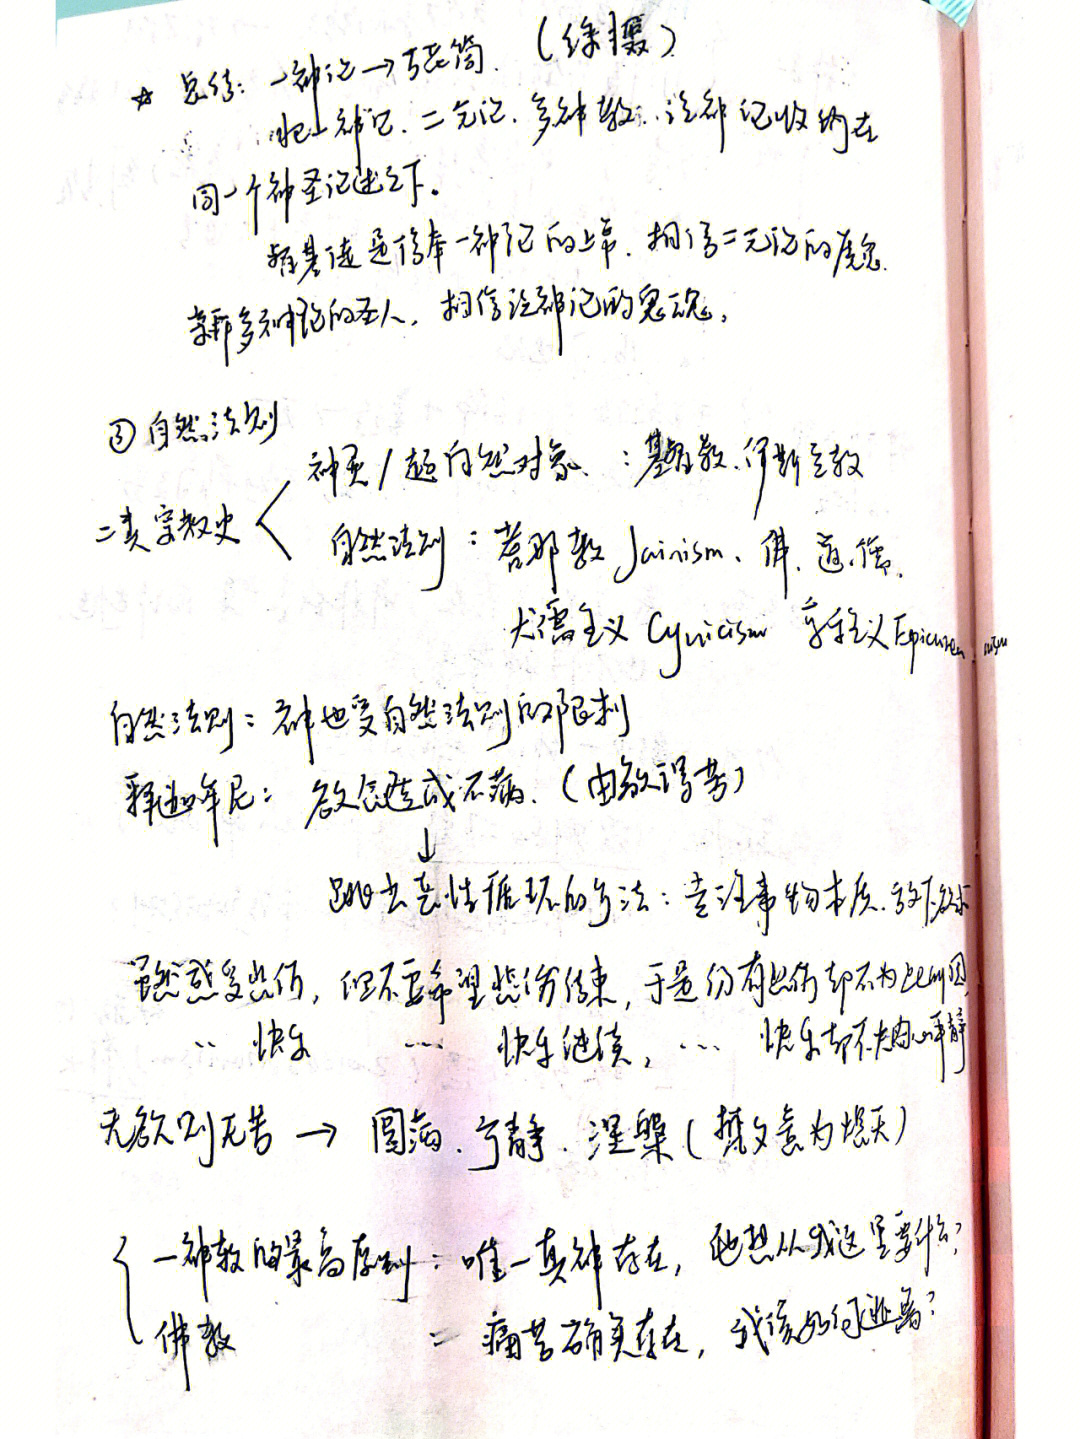 ☆ 总结：一神论→万花筒.（综摄）
把一神论、二元论、多神教、泛神论收纳在
同一个神圣论述之下。
基督徒是信奉一神论的上帝、相信二元论的魔鬼、
崇拜多神论的圣人、相信泛神论的鬼魂。
③ 自然法则
二类宗教史 < 神灵/超自然对象、：基督教、伊斯兰教
自然法则：耆那教 Jainism、佛、道、儒、
犬儒主义 Cynicism 享乐主义 Epicureanism
自然法则：神也受自然法则的限制
释迦牟尼：欲念造成不满、（由欲得苦）
↓
跳出恶性循环的方法：专注事物本质、放下欲求
虽然感受悲伤，但不要希望悲伤结束，于是仍有悲伤却不为此所困
‥ 快乐 … 快乐继续，… 快乐却不失内心平静
无欲则无苦 → 圆满、宁静、涅槃（梵文意为熄灭）
一神教的最高原则：唯一真神存在，他想从我这里要什么？
佛教 = 痛苦确实存在，我该如何逃离？